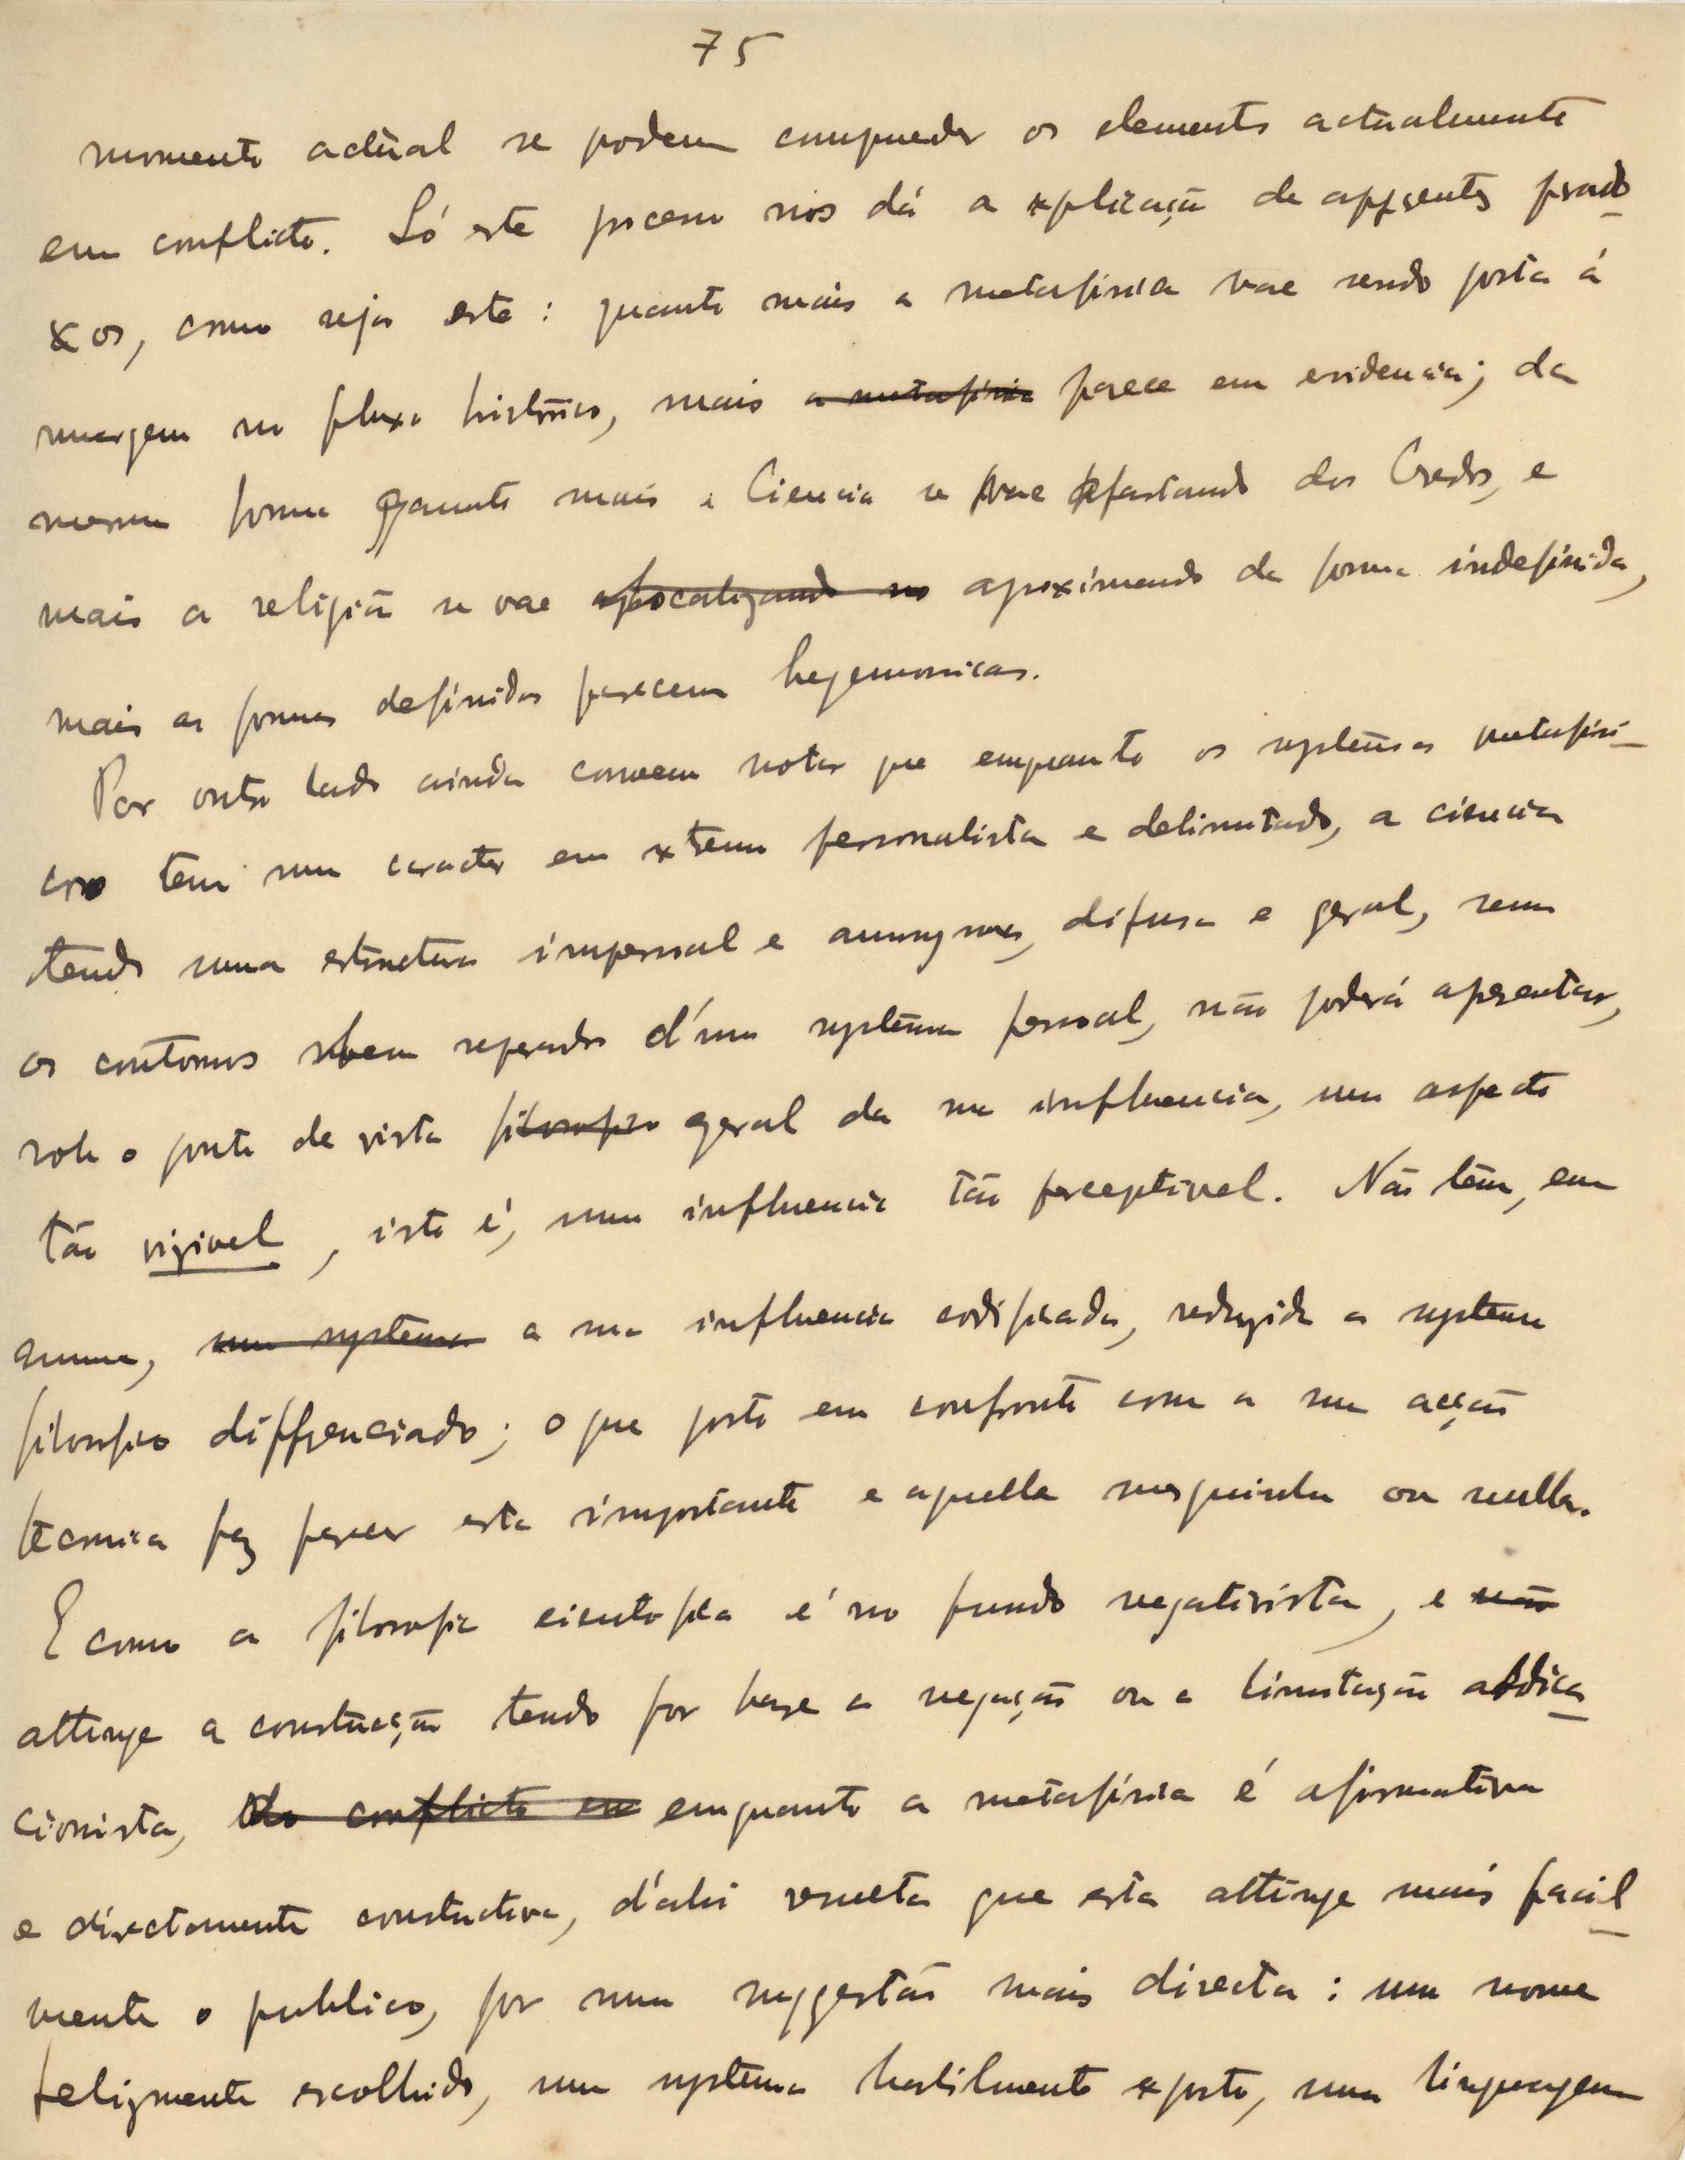 75
momento actual se podem comprender os elementos actualmente
em conflicto. Só este processo nos dá a explicação de apparentes parado
xos, como seja este: quanto mais a metafisica vae sendo posta á
margem no fluxo historico, mais a metafisica parece em evidencia; da
mesma forma quanto mais a Ciencia se vae afastando dos Credos, e
mais a religião se vae aproximando da forma indefinida,
mais as formas definidas parecem hegemonicas.
Por outro lado ainda convem notar que emquanto os systemas metafisi-
cos tem um caracter em extremo personalista e delimitado, a ciencia
tendo uma estructura impersoal e anonyma, difusa e geral, sem
os contornos bem separados d'um systema pessoal, não poderá apresentar,
sob o ponto de vista filosofico geral da sua influencia, um aspecto
tão visivel, isto é, uma influencia tão perceptivel. Não tem, em
summa, um systema a sua influencia codificada, reduzida a systema
filosofico differenciado; o que posto em confronto com a sua acção
tecnica faz parecer esta importante e aquella mesquinha ou nulla.
E como a filosofia cientifica é no fundo negativista, e não
attinge a construcção tendo por base a negação ou a limitação abdica
cionista, do conflicto en emquanto a metafisica é afirmativa
e directamente constructiva, d'ahi resulta que esta attinge mais facil
mente o publico, por uma suggestão mais directa: um nome
felizmente escolhido, um systema habilmente exposto, uma linguagem